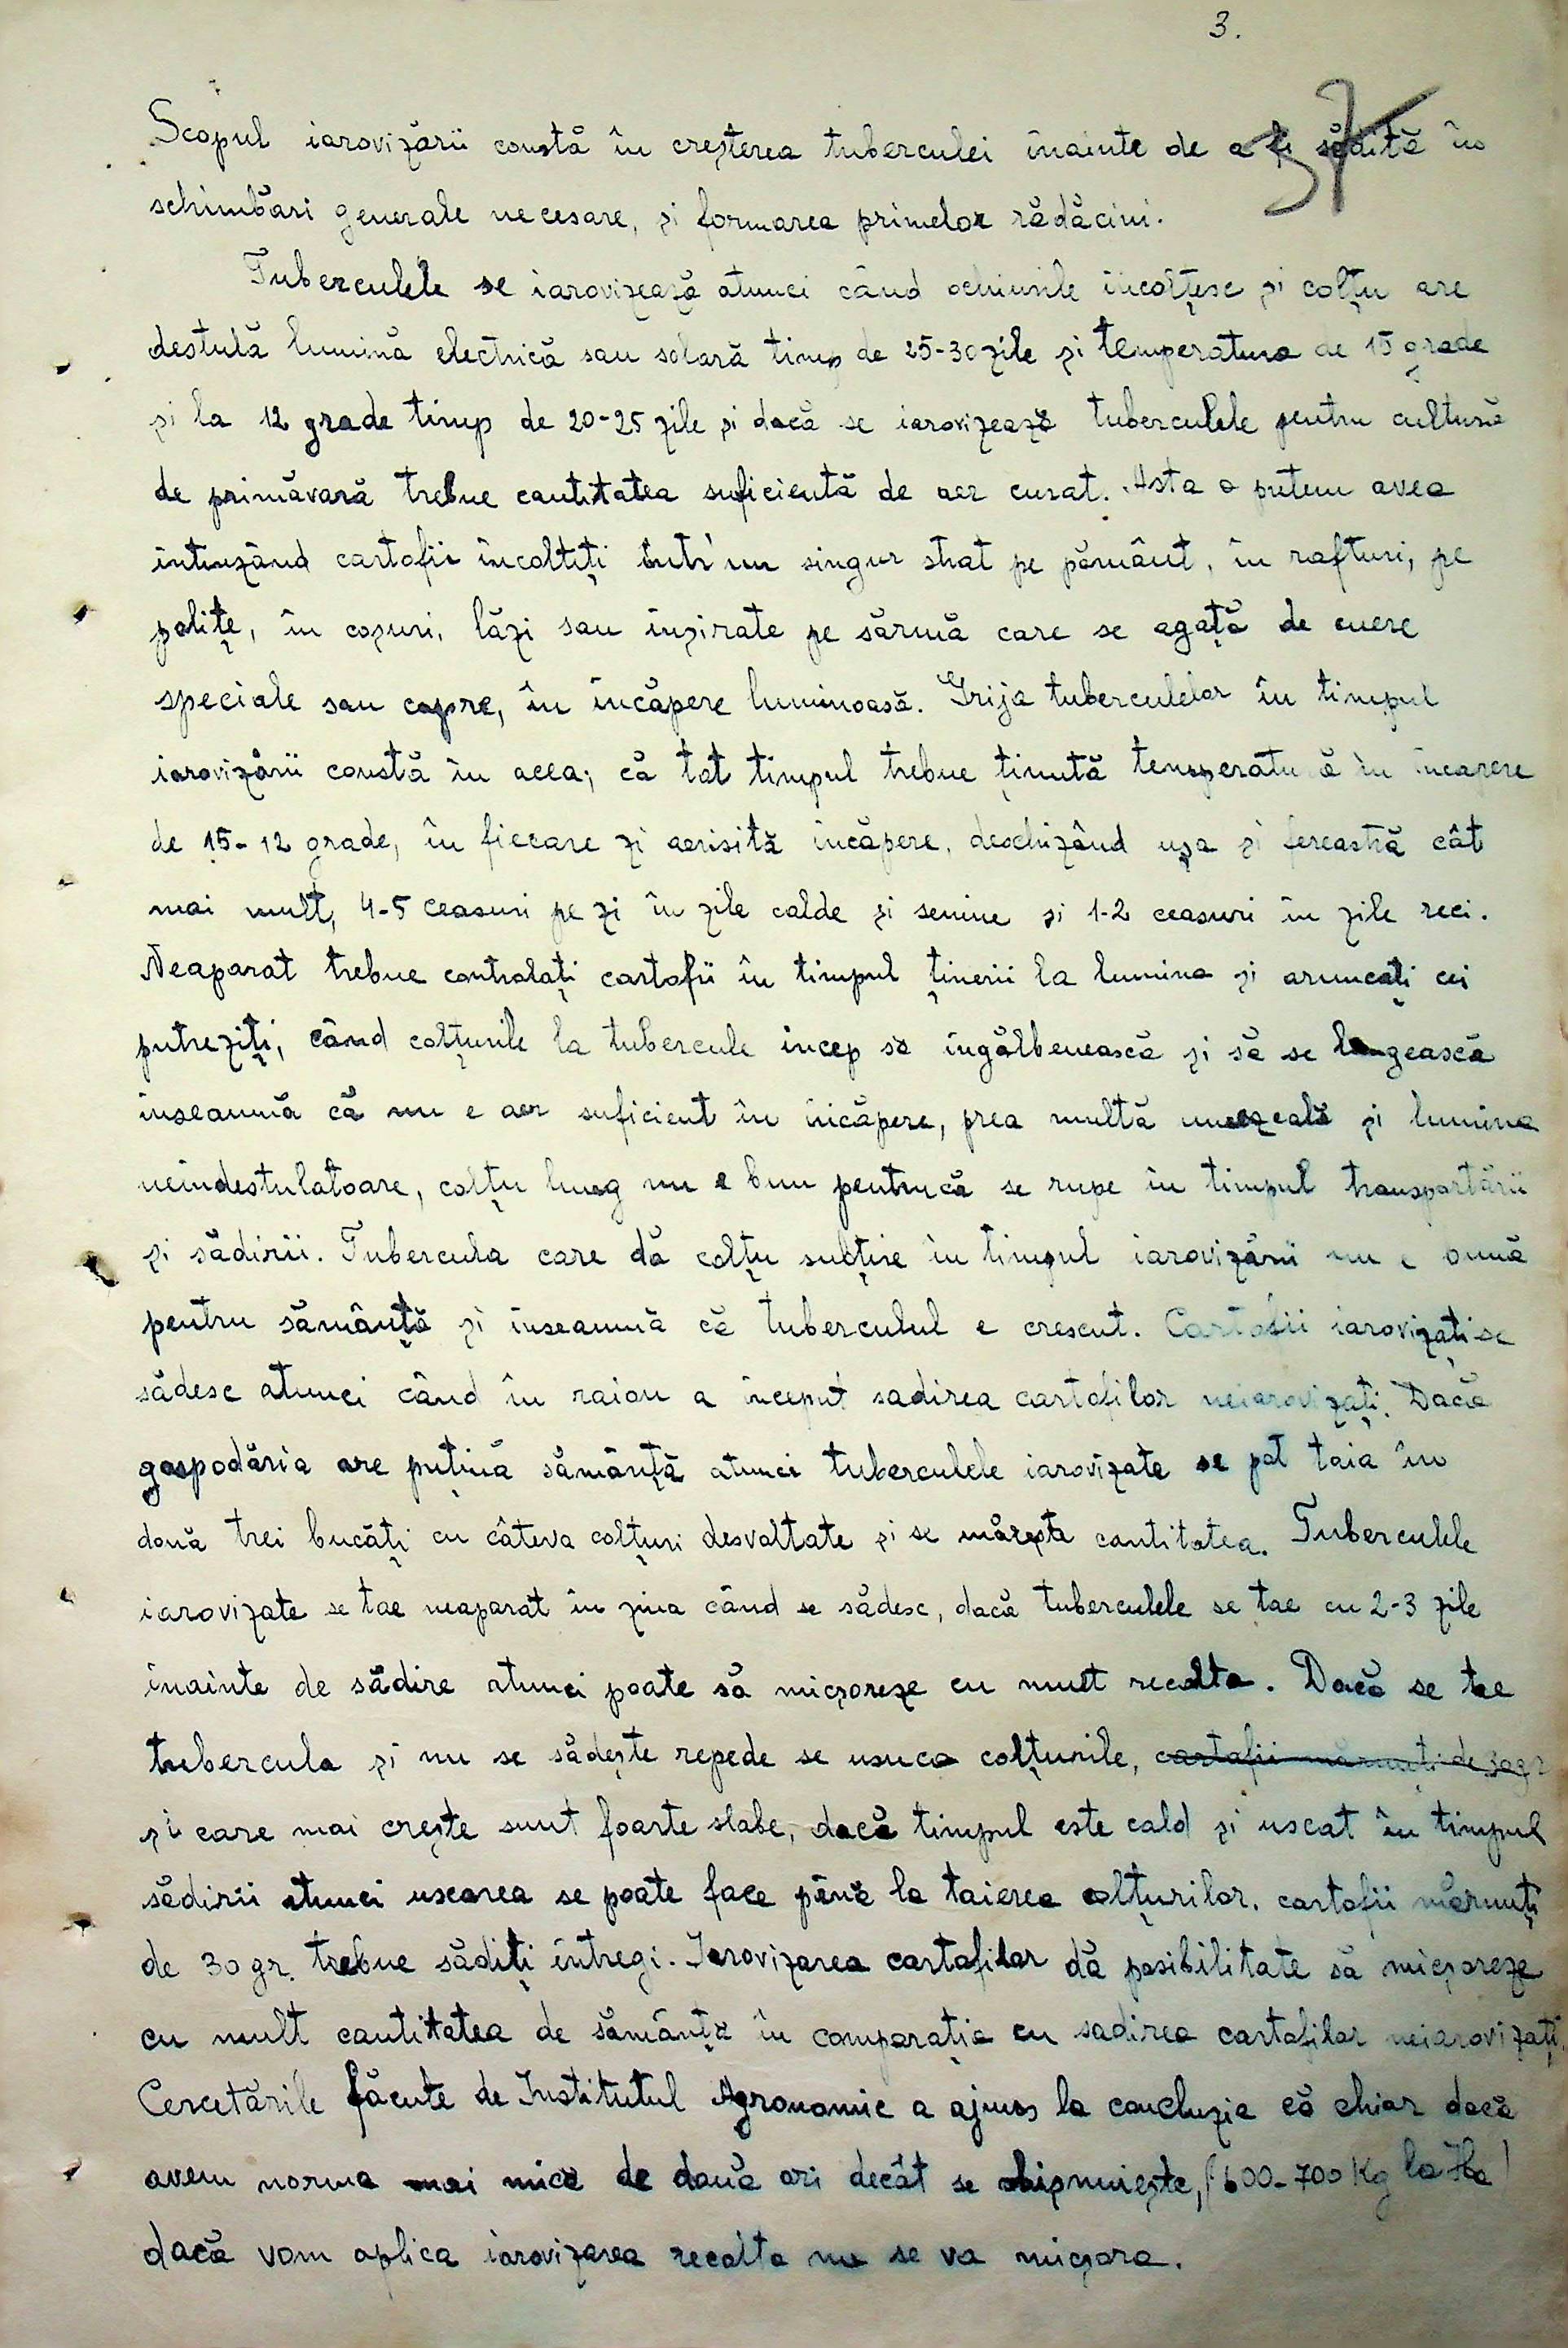 3.
37
Scopul iarovizării constă în creșterea tuberculei înainte de a fi sădită în
schimbări generale necesare, și formarea primelor rădăcini.
Tuberculele se iarovizează atunci când ochiurile încolțesc și colțu are
destulă lumină electrică sau solară timp de 25-30 zile și temperatura de 15 grade
și la 12 grade timp de 20-25 zile și dacă se iarovizează tuberculele pentru cultură
de primăvară trebue cantitatea suficientă de aer curat. Asta o putem avea
întinzând cartofii încoltiți într'un singur strat pe pământ, în rafturi, pe
polițe, în coșuri, lăzi sau inșirate pe sărmă care se agață de cuere
speciale sau capre, în încăpere luminoasă. Grija tuberculelor în timpul
iarovizării constă în acea, că tot timpul trebue ținută temperatură în încapere
de 15-12 grade, în fiecare zi aerisită încăpere, deschizând ușa și fereastră cât
mai mult, 4-5 ceasuri pe zi în zile calde și senine și 1-2 ceasuri în zile reci.
Neaparat trebue controlați cartofii în timpul ținerii la lumina și aruncați cei
putreziți, când colțurile la tubercule incep să îngălbenească și să se lungească
inseamnă că nu e aer suficient în încăpere, prea multă umezeală și lumina
neindestulatoare, colțu lung nu e bun pentrucă se rupe în timpul transportării
și sădirii. Tubercula care dă colțu subțire în timpul iarovizării nu e bună
pentru sămânță și inseamnă că tuberculul e crescut. Cartofii iarovizați se
sădesc atunci când în raion a început sadirea cartofilor neiarovizați. Dacă
gospodăria are puțină sămânță atunci tuberculele iarovizate se pot tăia în
două trei bucăți cu câteva colțuri desvoltate și se mărește cantitatea. Tuberculele
iarovizate se tae neaparat în ziua când se sădesc, dacă tuberculele se tae cu 2-3 zile
înainte de sădire atunci poate să micșoreze cu mult recolta. Dacă se tae
tubercula și nu se sădește repede se usuca colțurile, cartofii mărunți de 30gr
și care mai crește sunt foarte slabe, dacă timpul este cald și uscat în timpul
sădirii atunci uscarea se poate face până la taierea colțurilor, cartofii mărunți
de 30 gr. trebue sădiți întregi. Iarovizarea cartofilor dă posibilitate să micșoreze
cu mult cantitatea de sămânță în comparație cu sadirea cartofilor neiarovizați.
Cercetările făcute de Institutul Agronomic a ajuns la concluzie că chiar dacă
avem norma mai mică de două ori decât se obișnuiește, (600-700 Kg la Ha)
dacă vom aplica iarovizarea recolta nu se va micșora.